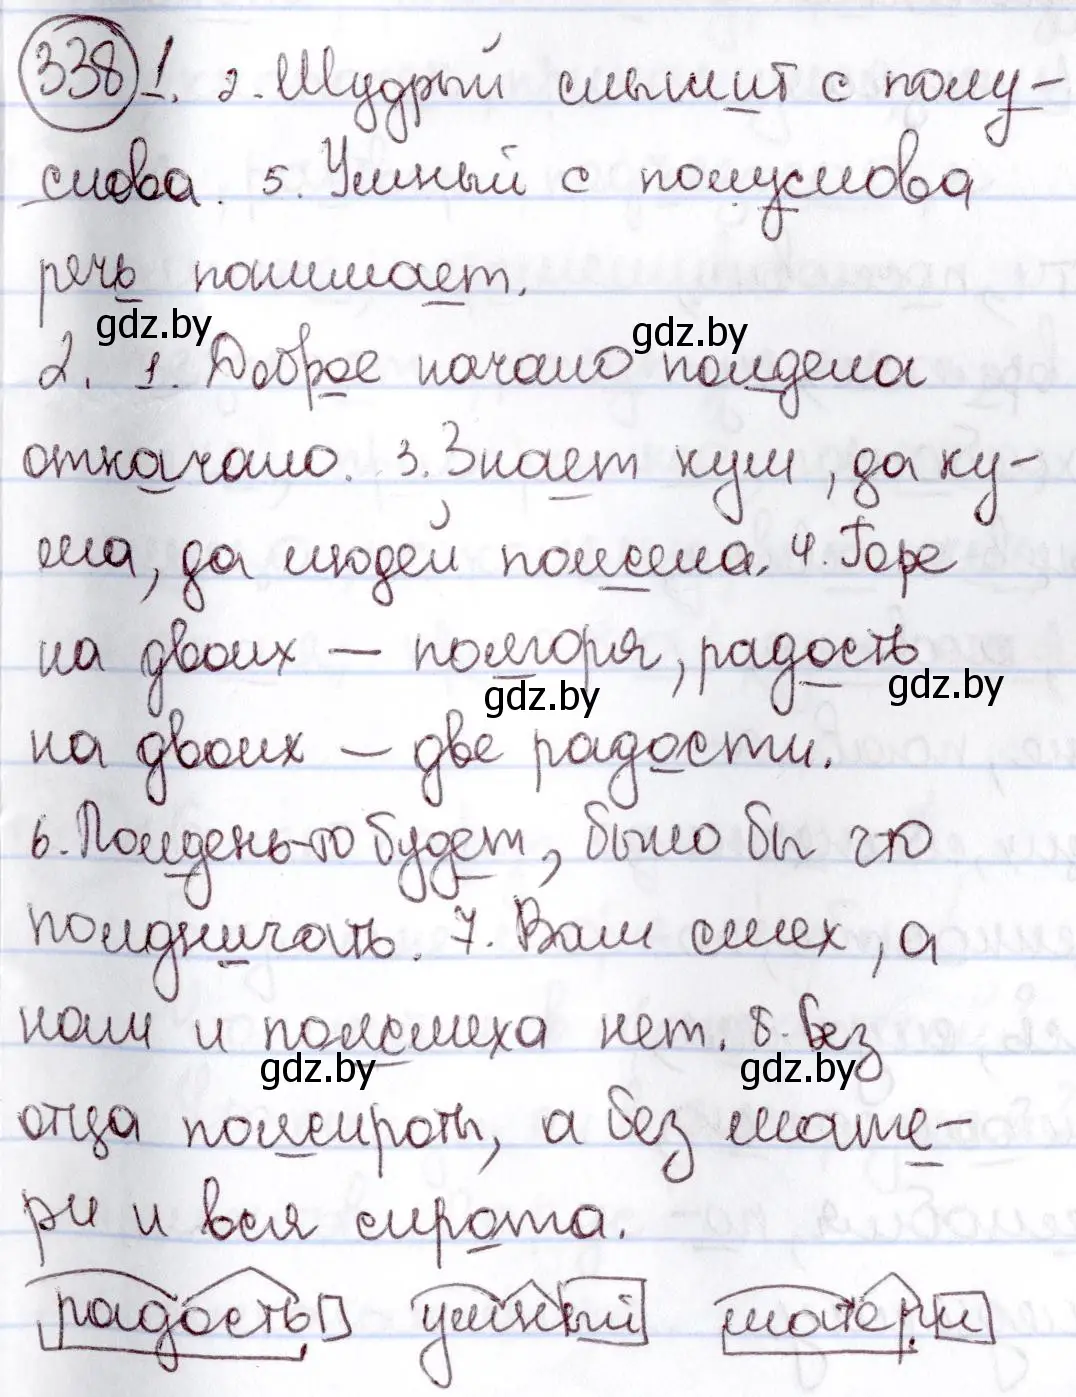 338 1. 2. Мудрый слышит с полу-
слова. 5. Умный с полуслова
речь понимает.
gdz.by gdz.by
2. 1. Доброе начало полдела
откачало. 3. Знает кум, да ку-
ма, да людей полсела. 4. Горе
на двоих — полгоря, радость
gdz.by gdz.by
на двоих — две радости.
6. Полдень-то будет, было бы что
полдничать. 7. Вам смех, а
нам и полсмеха нет. 8. Без
gdz.by gdz.by
отца полсироты, а без мате-
ри и вся сирота.
радость умный матери